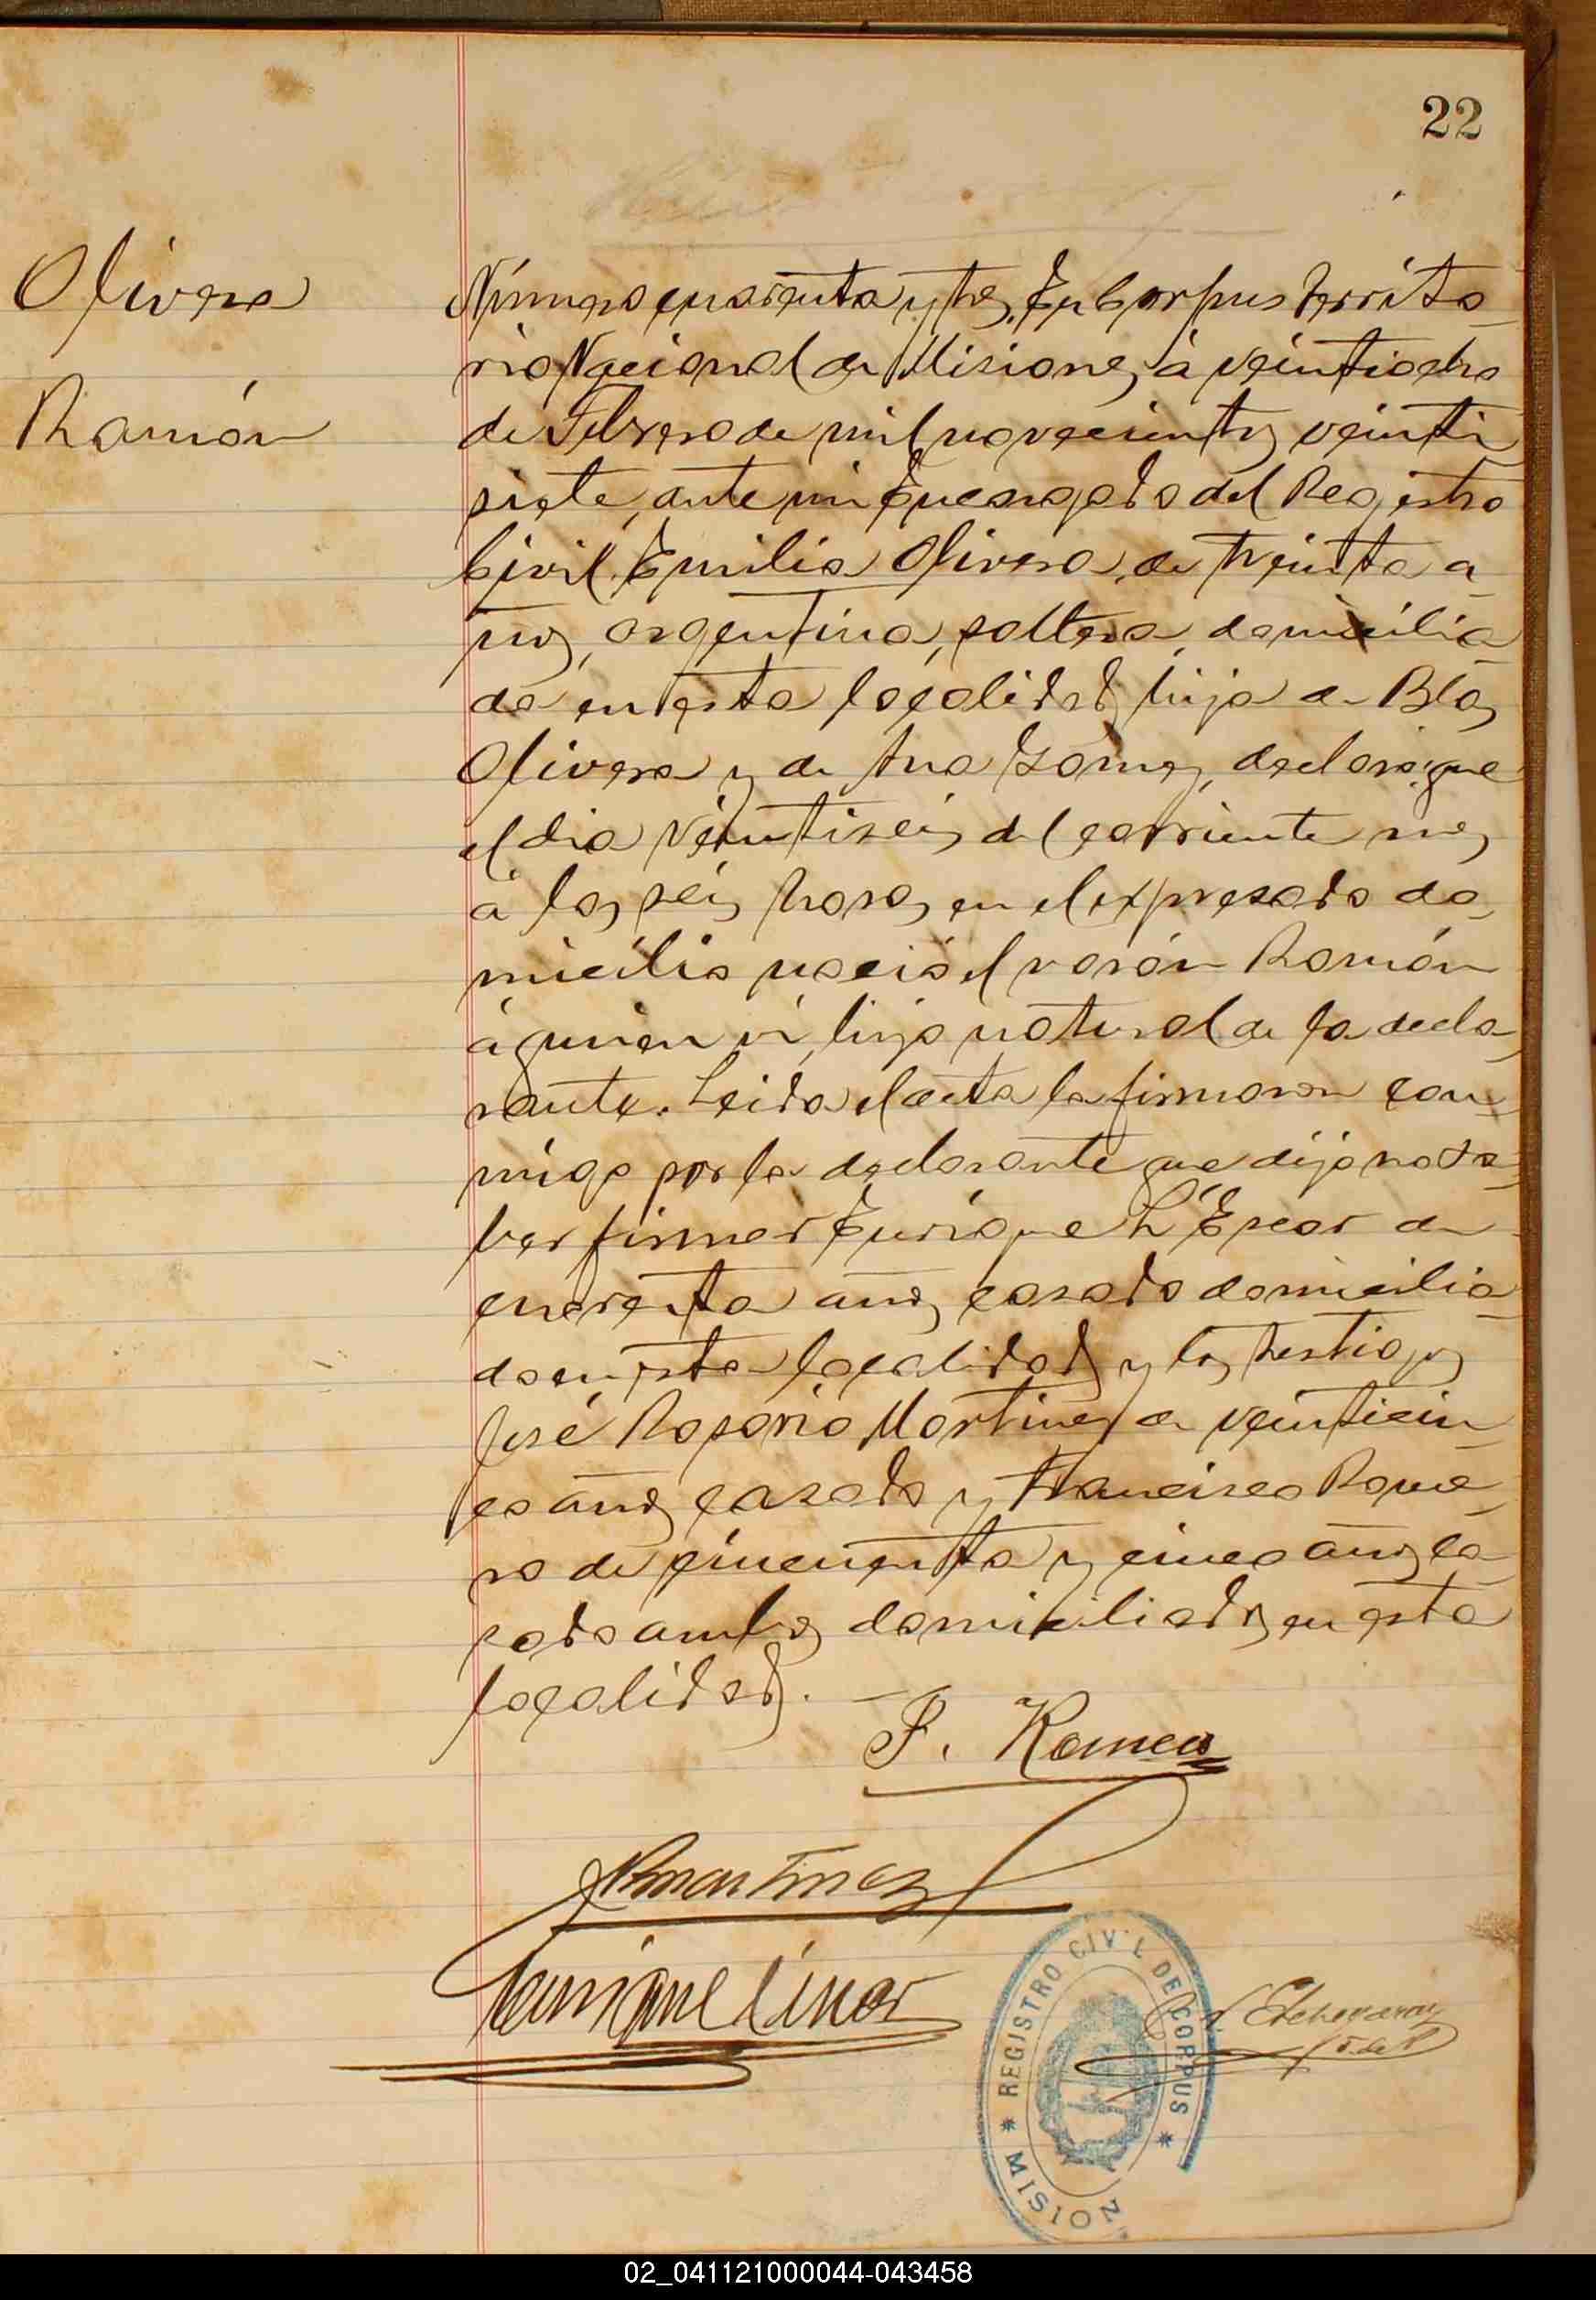 22
Olivera
Ramón
Número cuarenta y tres. En Corpus territo-
rio Nacional de Misiones, á veintiocho
de Febrero de mil novecientos veinti
siete, ante mi Encargado del Registro
Civil, Emilia Olivera, de treinta a-
ños, argentina, soltera, domicilia-
da en esta localidad, hija de Blas
Olivera y de Ana Gomez, declara: que
el dia veintiseis del corriente mes
á las seis horas en el expresado do-
micilio nació el varón Ramón
á quien ví, hijo natural de la decla-
rante. Leida el acta la firmaron con-
migo por la declarante que dijo no sa-
ber firmar Enrique de
cuarenta años casado domicilia-
do en esta localidad y los testigos
José Rosario Martinez de veinticin-
co años casado y Francisco Rome-
ro de cincuenta y cinco años ca-
sado ambos domiciliados en esta
localidad. —
F. Romero
JRMartinez
Enrique
Etchegaray
REGISTRO CIVIL DE CORPUS
MISION
02_041121000044-043458